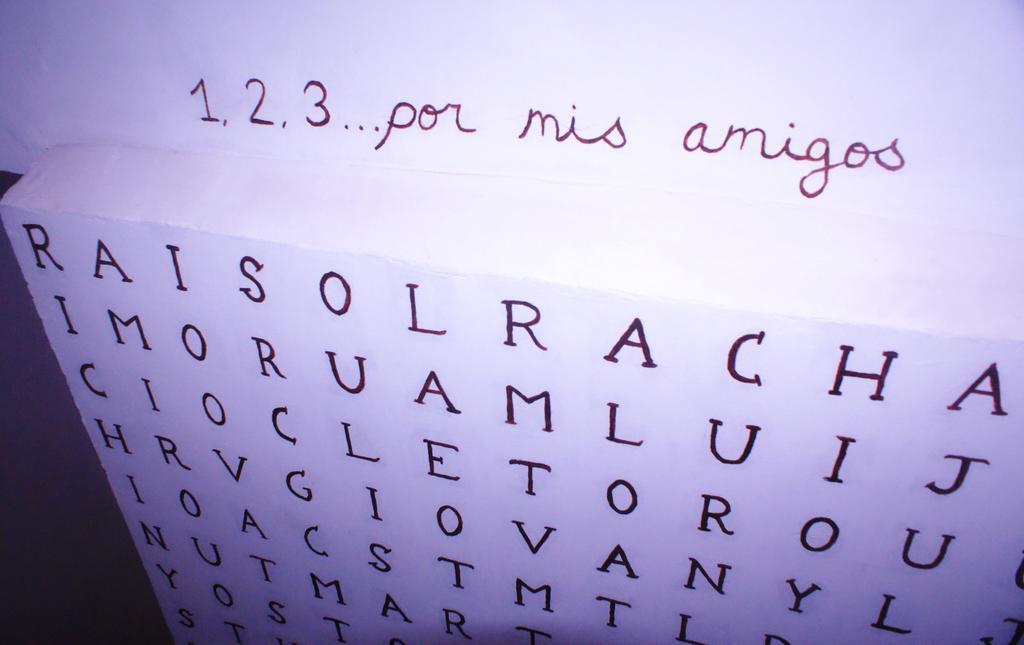 1, 2, 3...por mis amigos
R A I S O L R A C H A
I M O R U A M L U I J
C I O C L E T O R O U
H R V G I O V A N Y L
I O A C S T M T L
N U T M A R T
Y O S T
S T